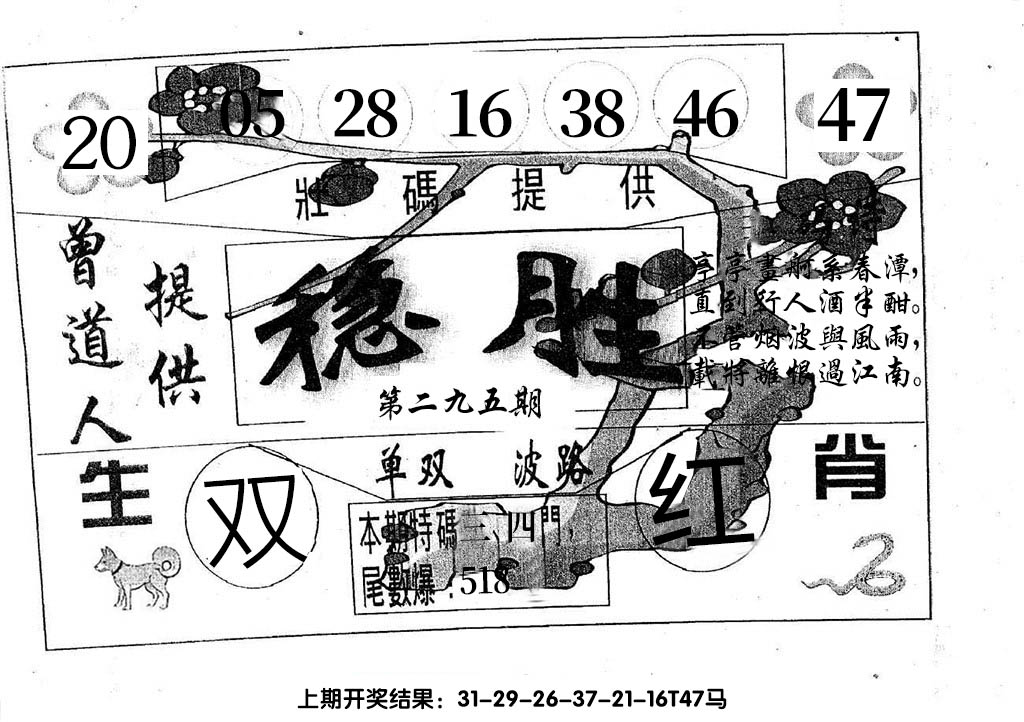 20 05 28 16 38 46 47
壯碼提供
曾道人
提供
稳胜
第二九五期
亭亭畫舸系春潭，
直倒行人酒半酣。
不管烟波與風雨，
載將離恨過江南。
生肖
单双 波路
双
红
本期特碼三、四門，
尾數爆：518
上期开奖结果：31-29-26-37-21-16T47马